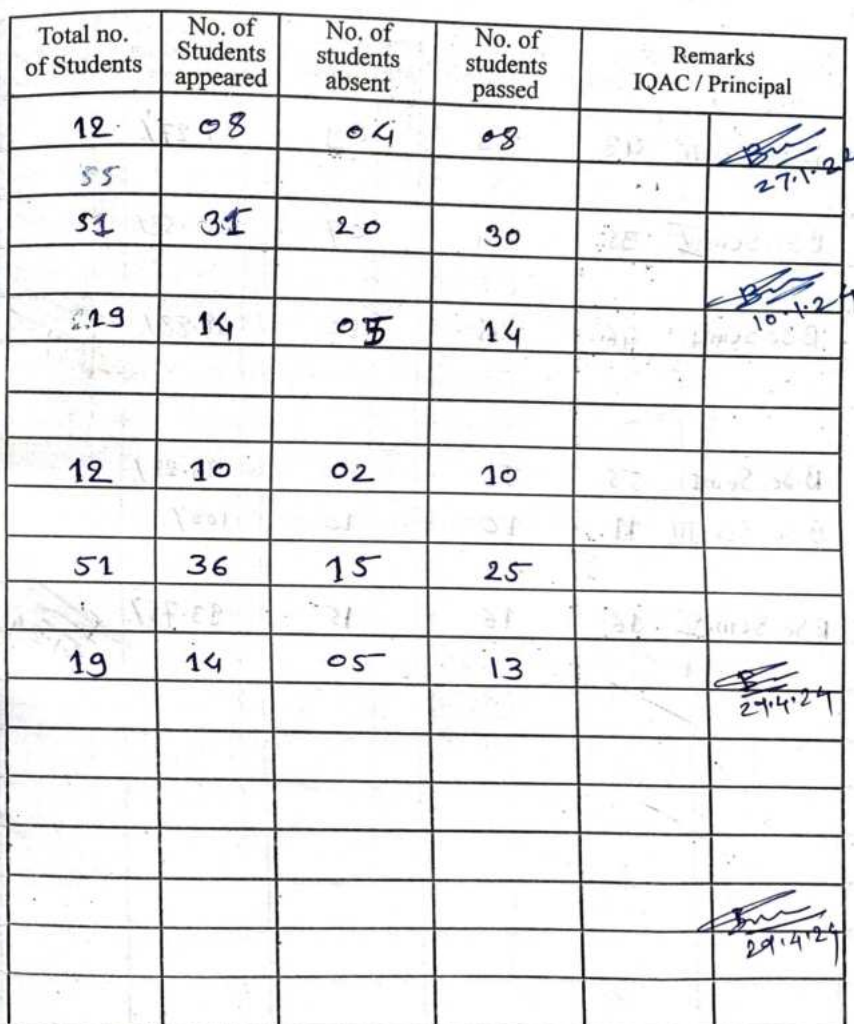 Total no. of Students | No. of Students appeared | No. of students absent | No. of students passed | Remarks IQAC / Principal
12 | 08 | 04 | 08
27.1.22
55
51 | 31 | 20 | 30
10.1.24
19 | 14 | 05 | 14
12 | 10 | 02 | 10
51 | 36 | 15 | 25
19 | 14 | 05 | 13
29.4.24
29.4.24